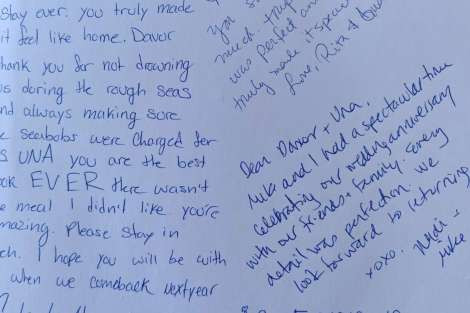 stay ever. you truly made
it feel like home. Davor
thank you for not drowning
us during the rough seas
and always making sure
seabobs were charged for
us UNA you are the best
EVER there wasn't
meal I didn't like you're
amazing. Please stay in
I hope you will be with
when we comeback next year
You
much.
was perfect
truly made it special
Love, Rita &
Dear Davor + Una,
Mike and I had a spectacular time
celebrating our wedding anniversary
with our friends + family. Every
detail was perfection. We
look forward to returning
xoxo.
Mike